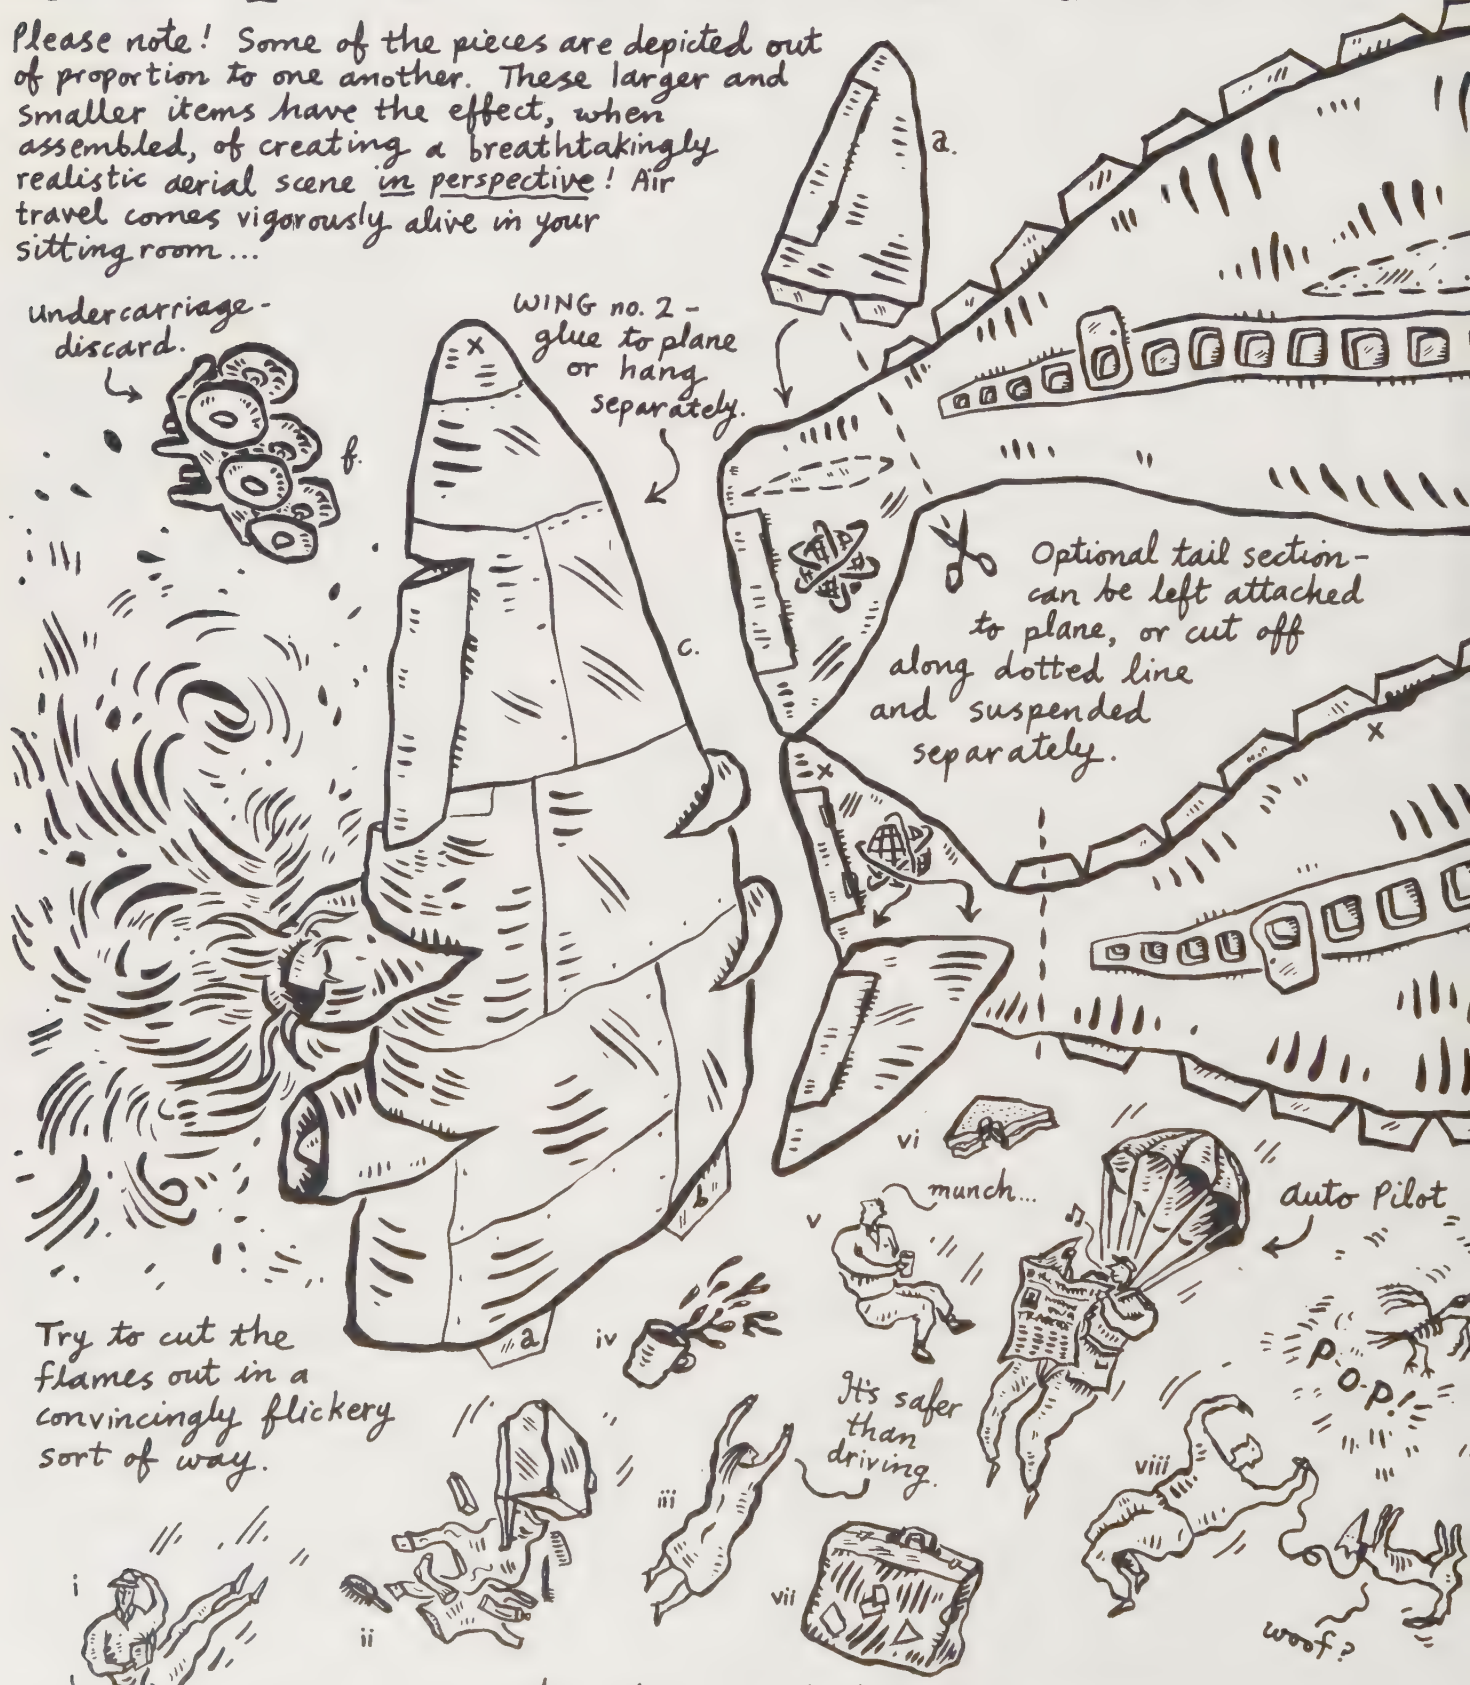 Please note! Some of the pieces are depicted out
of proportion to one another. These larger and
smaller items have the effect, when
assembled, of creating a breathtakingly
realistic aerial scene in perspective! Air
travel comes vigorously alive in your
sitting room...
a.
undercarriage -
discard.
f.
WING no. 2 -
glue to plane
or hang
separately.
x
c.
Optional tail section -
can be left attached
to plane, or cut off
along dotted line
and suspended
separately.
x
x
b
a
Try to cut the
flames out in a
convincingly flickery
sort of way.
vi
munch...
v
auto Pilot
iv
It's safer
than
driving.
POP!
iii
viii
vii
i
ii
woof?